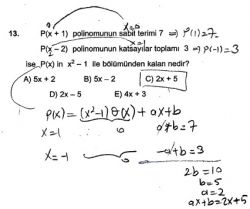 x=0
13. P(x + 1) polinomunun sabit terimi 7 => P(1)=7
x=1
P(x – 2) polinomunun katsayılar toplamı 3 => P(-1)=3
ise P(x) in x² – 1 ile bölümünden kalan nedir?
A) 5x + 2 B) 5x – 2 C) 2x + 5
D) 2x – 5 E) 4x + 3
P(x) = (x²-1) Q(x) + ax+b
x=1 0 a+b=7
x=-1 0 -a+b=3
2b=10
b=5
a=2
ax+b=2x+5